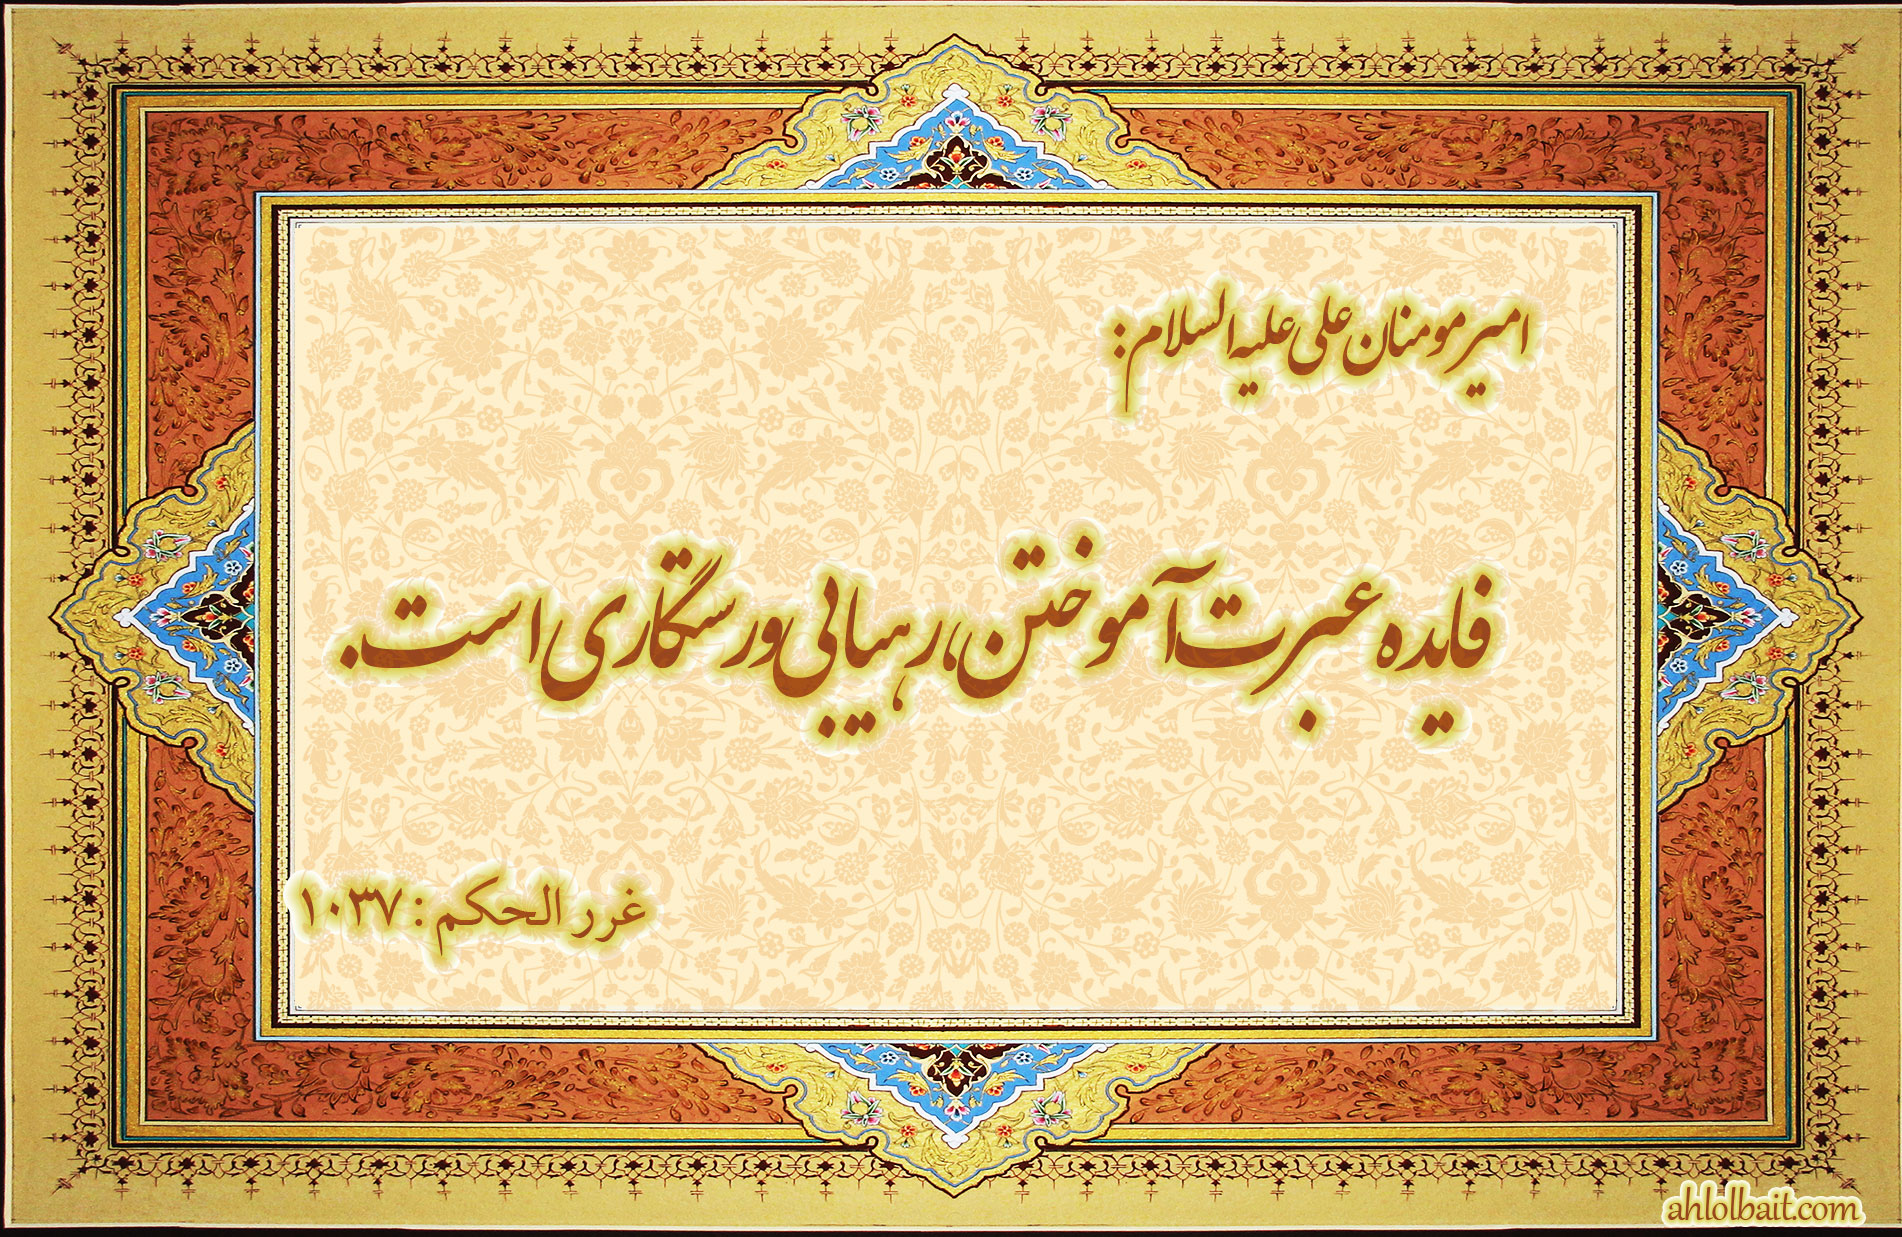 امیر مومنان علی علیه السلام:
فایده عبرت آموختن، رهیابی و رستگاری است.
غرر الحکم : ۱۰۳۷
ahlolbait.com